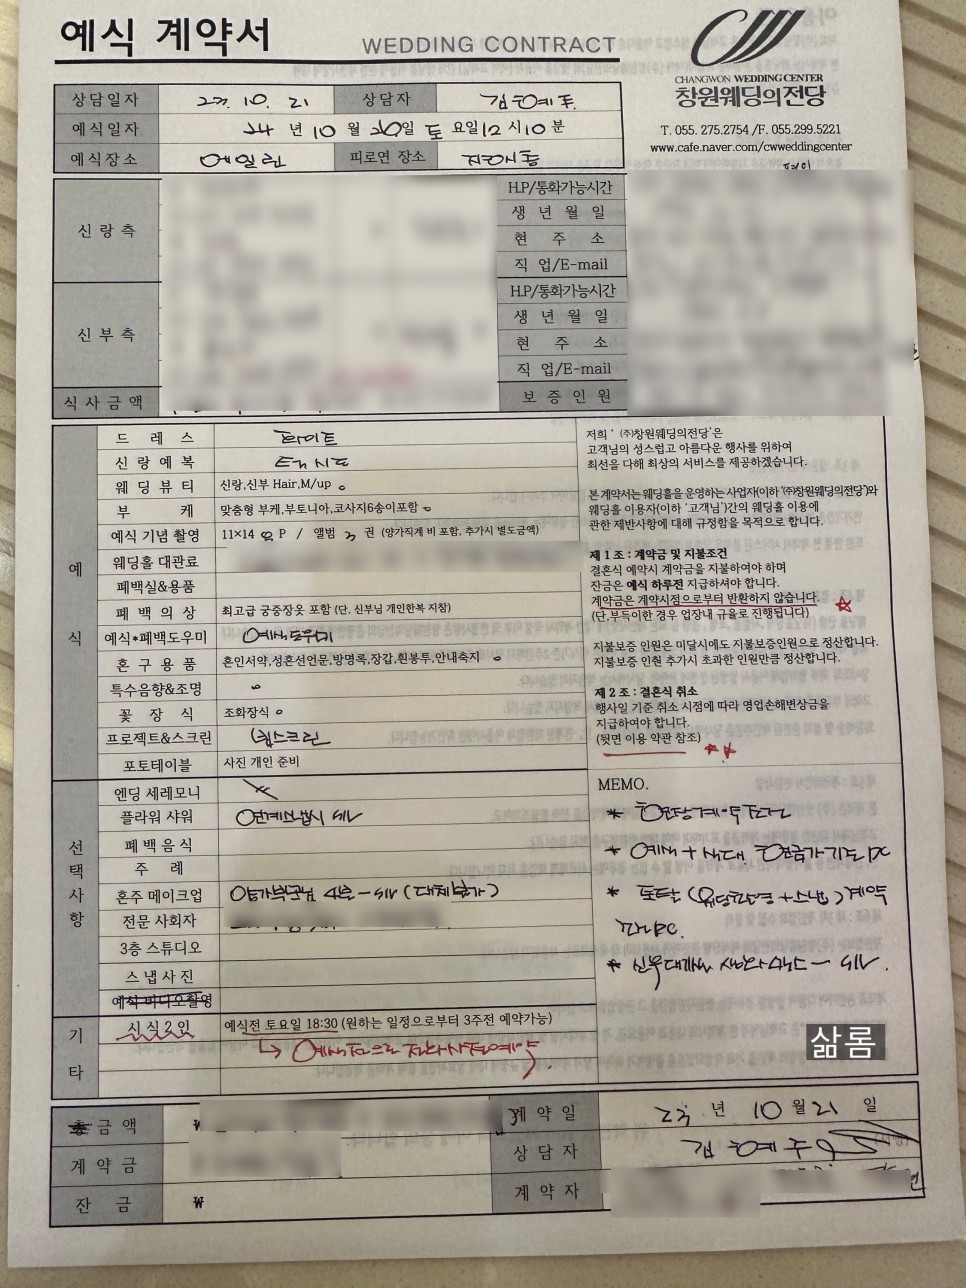 예식 계약서
WEDDING CONTRACT
CHANGWON WEDDING CENTER
창원웨딩의전당
T. 055. 275.2754 /F. 055.299.5221
www.cafe.naver.com/cwweddingcenter
상담일자 23. 10. 21 상담자
예식일자 24 년 10 월 일 토 요일 12 시 10 분
예식장소 피로연 장소
신랑측
H.P/통화가능시간
생년월일
현주소
직업/E-mail
신부측
H.P/통화가능시간
생년월일
현주소
직업/E-mail
식사금액 보증인원
예식
드레스 화이트
신랑예복 턱시도
웨딩뷰티 신랑,신부 Hair,M/up
부케 맞춤형 부케,부토니아,코사지6송이포함
예식 기념 촬영 11×14 P / 앨범 권 (양가직계 비 포함, 추가시 별도금액)
웨딩홀 대관료
폐백실&용품
폐백의상 최고급 궁중장옷 포함 (단, 신부님 개인한복 지참)
예식*폐백도우미 예식도우미
혼구용품 혼인서약,성혼선언문,방명록,장갑,흰봉투,안내족자
특수음향&조명
꽃장식 조화장식
프로젝트&스크린
포토테이블 사진 개인 준비
저희 ' (주)창원웨딩의전당'은
고객님의 성스럽고 아름다운 행사를 위하여
최선을 다해 최상의 서비스를 제공하겠습니다.
본 계약서는 웨딩홀을 운영하는 사업자(이하 '(주)창원웨딩의전당')와
웨딩홀 이용자(이하 '고객님')간의 웨딩홀 이용에
관한 제반사항에 대해 규정함을 목적으로 합니다.
제 1 조 : 계약금 및 지불조건
결혼식 예약시 계약금을 지불하여야 하며
잔금은 예식 하루전 지급하셔야 합니다.
계약금은 계약시점으로부터 반환하지 않습니다.
(단,부득이한 경우 업장내 규율로 진행됩니다)
지불보증 인원은 미달시에도 지불보증인원으로 정산합니다.
지불보증 인원 추가시 초과한 인원만큼 정산합니다.
제 2 조 : 결혼식 취소
행사일 기준 취소 시점에 따라 영업손해변상금을
지급하여야 합니다.
(뒷면 이용 약관 참조)
선택사항
엔딩 세레모니
플라워 샤워 연계스냅시 서비
폐백음식
주례
혼주 메이크업 양가부모님 4분 - 서비 (대체불가)
전문 사회자
3층 스튜디오
스냅사진
예식 비디오촬영
MEMO.
* 현당계약조건
* 예식 + 식대
* 토탈 계약
기타
시식2인 예식전 토요일 18:30 (원하는 일정으로부터 3주전 예약가능)
↳ 예식전으로 전화사전예약
총 금액 ₩
계약금
잔금 ₩
계약일 23 년 10 월 21 일
상담자
계약자
삶롬